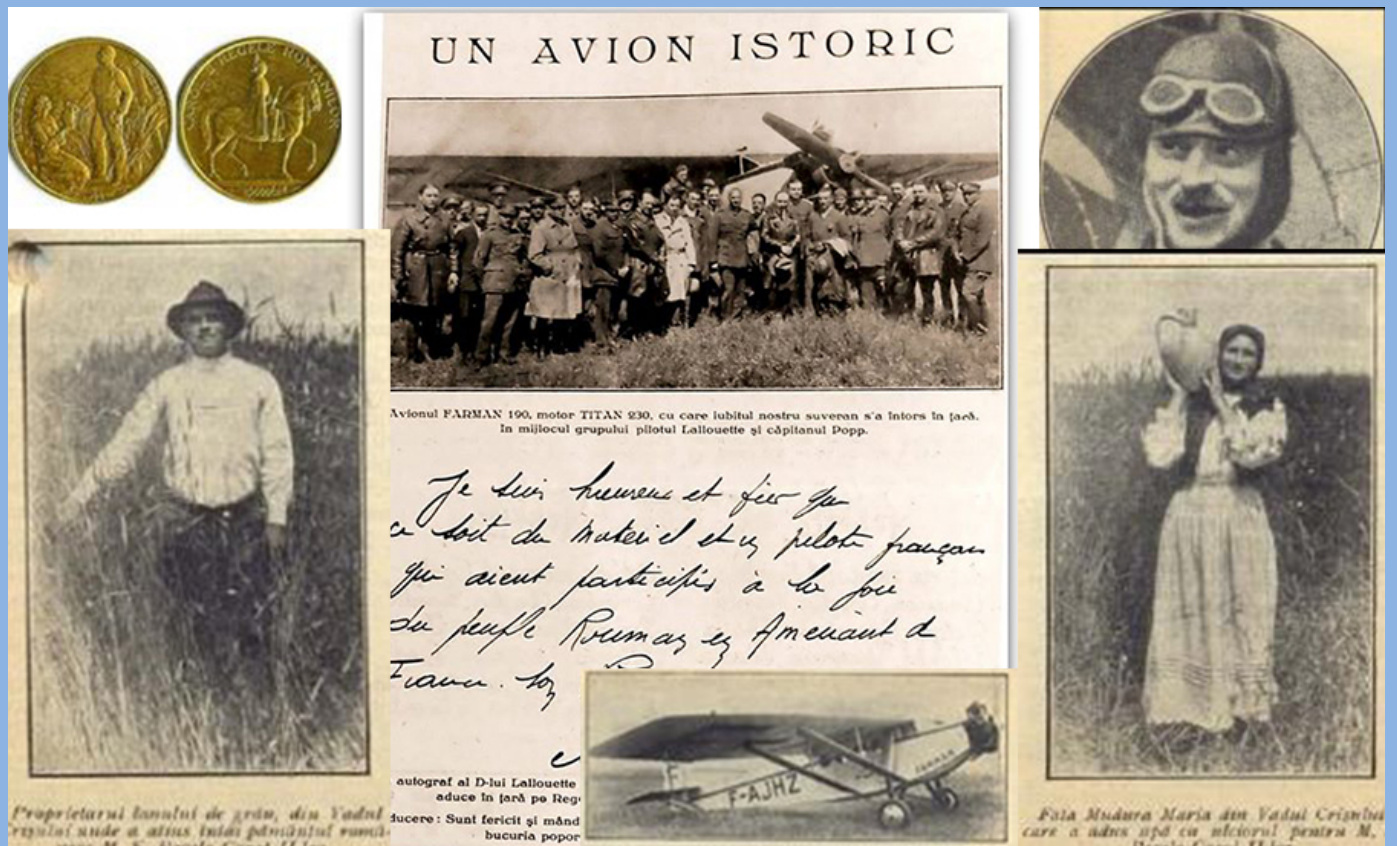 REGELE ROMANILOR
UN AVION ISTORIC
Avionul FARMAN 190, motor TITAN 230, cu care iubitul nostru suveran s'a întors în țară.
In mijlocul grupului pilotul Lallouette și căpitanul Popp.
Je suis heureux et fier que
ce soit du materiel et un pilote français
qui aient participés à la joie
du peuple Roumain en Amenant de
France son
FARMAN
F-AJHZ
autograf al D-lui Lallouette
aduce în țară pe Reg
ducere: Sunt fericit și mând
bucuria popor
Proprietarul lanului de grâu, din Vadul
Crișului unde a atins întâi pământul româ-
nesc M. S. Regele Carol II-lea
Fata Mudura Maria din Vadul Crișului
care a adus apă cu ulciorul pentru M.
Regele Carol II-lea